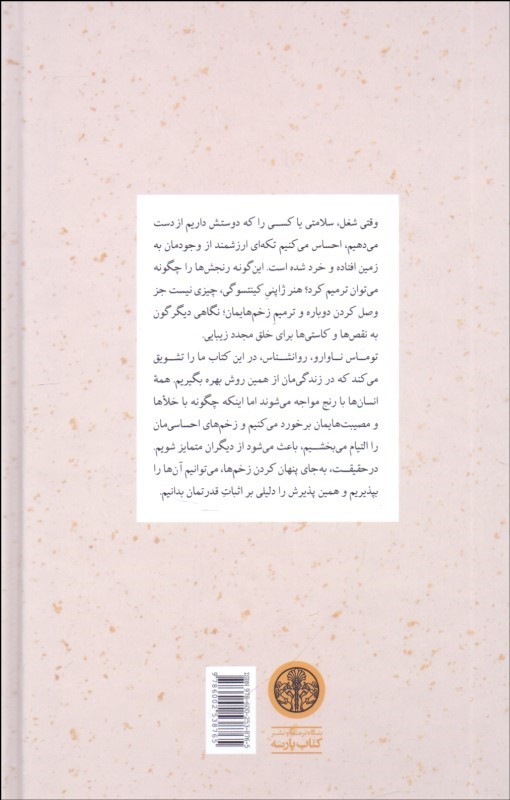 وقتی شغل، سلامتی یا کسی را که دوستش داریم از دست
می‌دهیم، احساس می‌کنیم تکه‌ای ارزشمند از وجودمان به
زمین افتاده و خرد شده است. این‌گونه رنجش‌ها را چگونه
می‌توان ترمیم کرد؛ هنر ژاپنیِ کینتسوگی، چیزی نیست جز
وصل کردن دوباره و ترمیمِ زخم‌هایمان؛ نگاهی دیگرگون
به نقص‌ها و کاستی‌ها برای خلق مجدد زیبایی.
توماس ناوارو، روانشناس، در این کتاب ما را تشویق
می‌کند که در زندگی‌مان از همین روش بهره بگیریم. همهٔ
انسان‌ها با رنج مواجه می‌شوند اما اینکه چگونه با خلأها
و مصیبت‌هایمان برخورد می‌کنیم و زخم‌های احساسی‌مان
را التیام می‌بخشیم، باعث می‌شود از دیگران متمایز شویم.
در حقیقت، به‌جای پنهان کردن زخم‌ها، می‌توانیم آن‌ها را
بپذیریم و همین پذیرش را دلیلی بر اثباتِ قدرتمان بدانیم.
ISBN 978-600-253-876-5
9786002538765
بنگاه ترجمه و نشر
کتاب پارسه